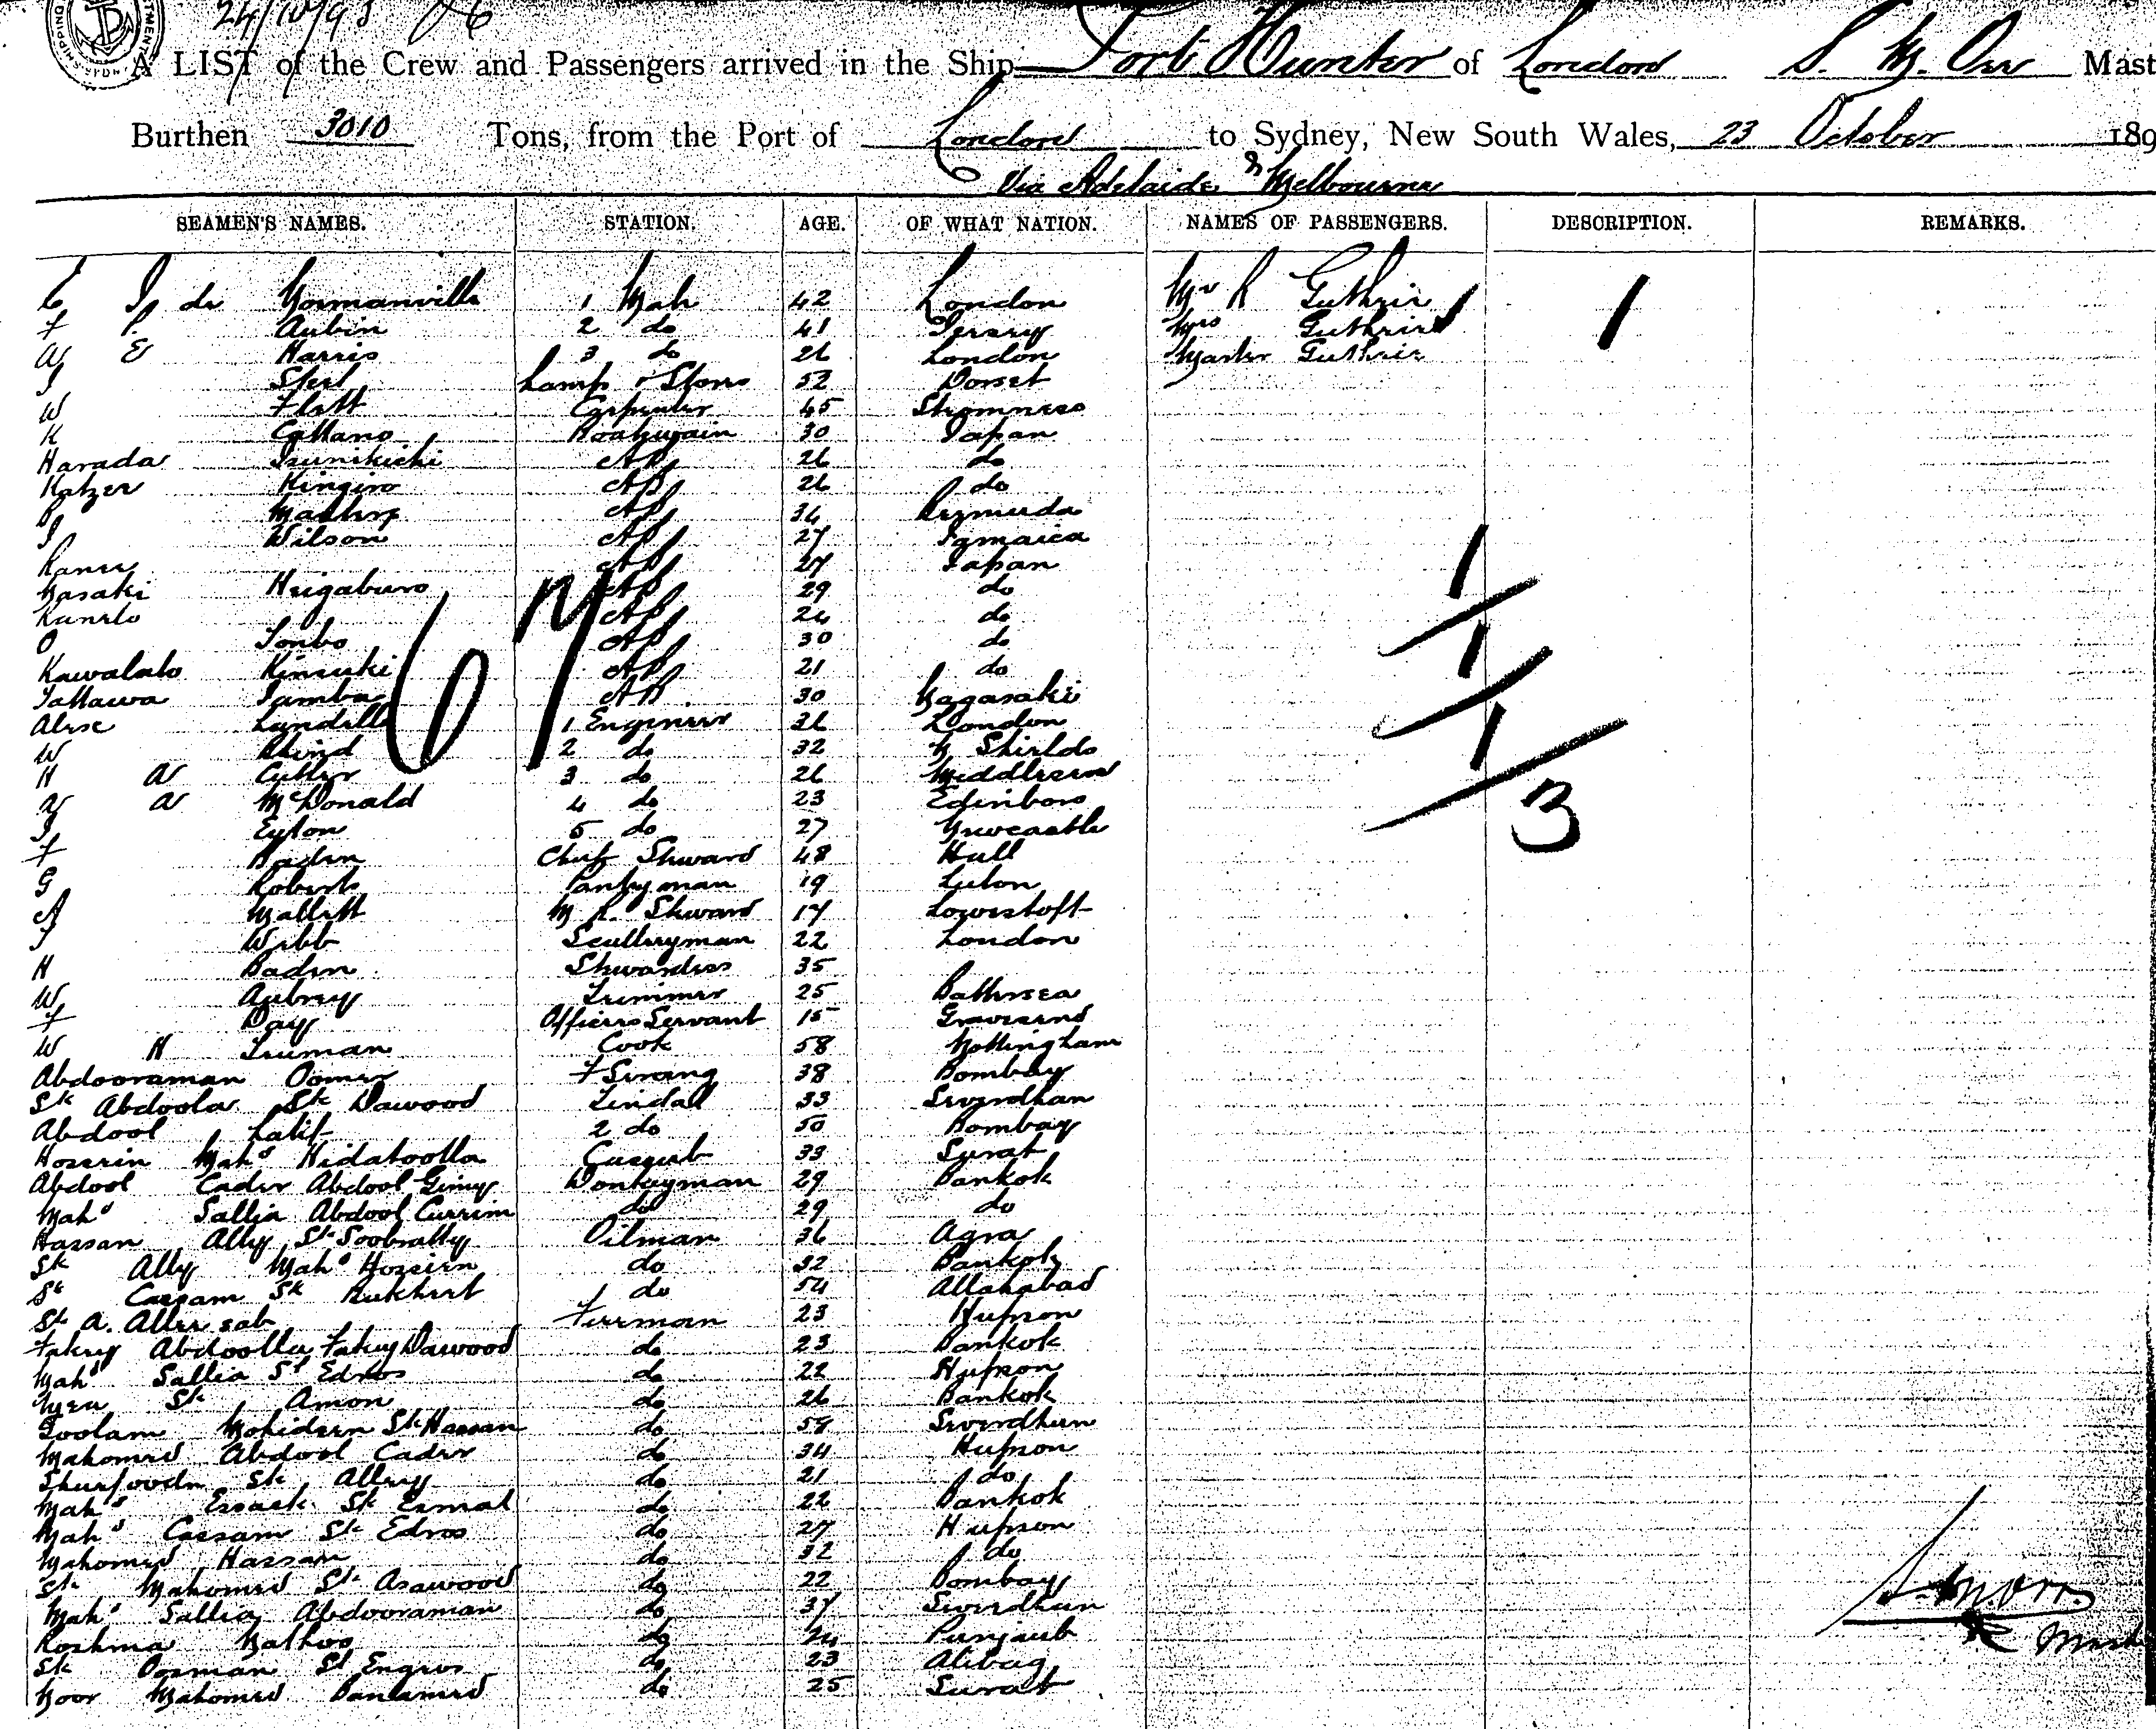 24/10/93
A LIST of the Crew and Passengers arrived in the Ship Port Hunter of London S. M. Orr Mast
Burthen 3010 Tons, from the Port of London to Sydney, New South Wales, 23 October 189
Via Adelaide & Melbourne
SEAMEN'S NAMES. STATION. AGE. OF WHAT NATION. NAMES OF PASSENGERS. DESCRIPTION. REMARKS.
C de Normanville 1 Mate 42 London Mr R Guthrie 1
F P. Aubin 2 do 41 Jersey Mrs Guthrie
A E Harris 3 do 26 London Master Guthrie
J Steel Lamps & Stores 52 Dorset
W Flett Carpenter 45 Stromness
K Cattano Boatswain 30 Japan
Harada Tsunikichi AB 26 do
Katzer Kingiro AB 26 do
AB 34 Bermuda
J Wilson AB 27 Jamaica 1
AB 27 Japan
Nasaki Heigaburo AB 29 do
Kunelo AB 24 do 1
O Tonbo AB 30 do
Kawalato Kinsuki AB 21 do
Tattawa Tamba AB 30 Nagasaki
67
Alexr Lundille 1 Engineer 36 London 1
W Rhind 2 do 32 N Shields
H A Cutler 3 do 26 Middlesex
A A McDonald 4 do 23 Edinboro 3
J Eylon 5 do 27 Newcastle
F Baden Chief Steward 48 Hull
G Roberts Pantryman 19 Luton
A Mallett M R. Steward 17 Lowestoft
J Webb Sculleryman 22 London
H Baden Stewardess 35
W Aubrey Trimmer 25 Battersea
F Day Officers Servant 15 Gravesend
W H Truman Cook 58 Nottingham
Abdooraman Oomer F Serang 38 Bombay
Sk Abdoola Sk Dawood Tindal 33 Severdhan
Abdool Latif 2 do 50 Bombay
Hossein Mahd Hidatoolla Cassub 33 Surat
Abdool Cader Abdool Gimy Donkeyman 29 Bankok
Mahd Sallia Abdool Currim do 29 do
Hassan Ally Sk Soobratty Oilman 36 Agra
Sk Ally Mahd Hossein do 32 Bankok
Sk Cassam Sk Bukhert do 54 Allahabad
Sk A. Allee sab Fireman 23 Hupson
Fakey Abdoolla Fakey Dawood do 23 Bankok
Mahd Sallia Sk Edros do 22 Hupson
Sk Amon do 26 Bankok
Goolam Mohideen Sk Hassan do 59 Severdhan
Mahomed Abdool Cader do 34 Hupson
Shurfoodn Sk Alley do 21 do
Mahd Essack Sk Esmal do 22 Bankok
Mahd Cassam Sk Edros do 27 Hupson
Mahomed Hassan do 32 do
Sk Mahomed Sk Asawood do 22 Bombay
Mahd Sallia Abdooraman do 37 Severdhan
S. M. Orr.
Roshma Nathoo do 24 Punjaub
Sk Oosman Sk Engros do 23 Alibag
Noor Mahomed do 25 Surat